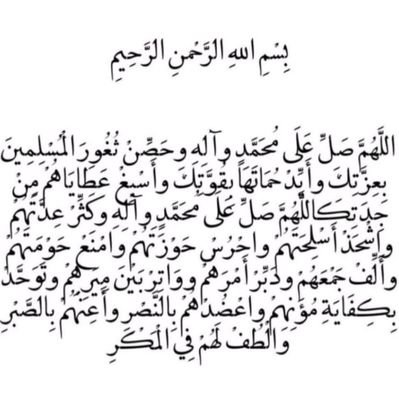 بِسْمِ اللهِ الرَّحْمنِ الرَّحِيمِ
اللَّهُمَّ صَلِّ عَلَى مُحَمَّدٍ وَآلِهِ وَحَصِّنْ ثُغُورَ الْمُسْلِمِينَ
بِعِزَّتِكَ وَأَيِّدْ حُمَاتَهَا بِقُوَّتِكَ وَأَسْبِغْ عَطَايَاهُمْ مِنْ
جِدَتِكَ اللَّهُمَّ صَلِّ عَلَى مُحَمَّدٍ وَآلِهِ وَكَثِّرْ عِدَّتَهُمْ
وَاشْحَذْ أَسْلِحَتَهُمْ وَاحْرُسْ حَوْزَتَهُمْ وَامْنَعْ حَوْمَتَهُمْ
وَأَلِّفْ جَمْعَهُمْ وَدَبِّرْ أَمْرَهُمْ وَوَاتِرْ بَيْنَ مِيَرِهِمْ وَتَوَحَّدْ
بِكِفَايَةِ مُؤَنِهِمْ وَاعْضُدْهُمْ بِالنَّصْرِ وَأَعِنْهُمْ بِالصَّبْرِ
وَالْطُفْ لَهُمْ فِي الْمَكْرِ